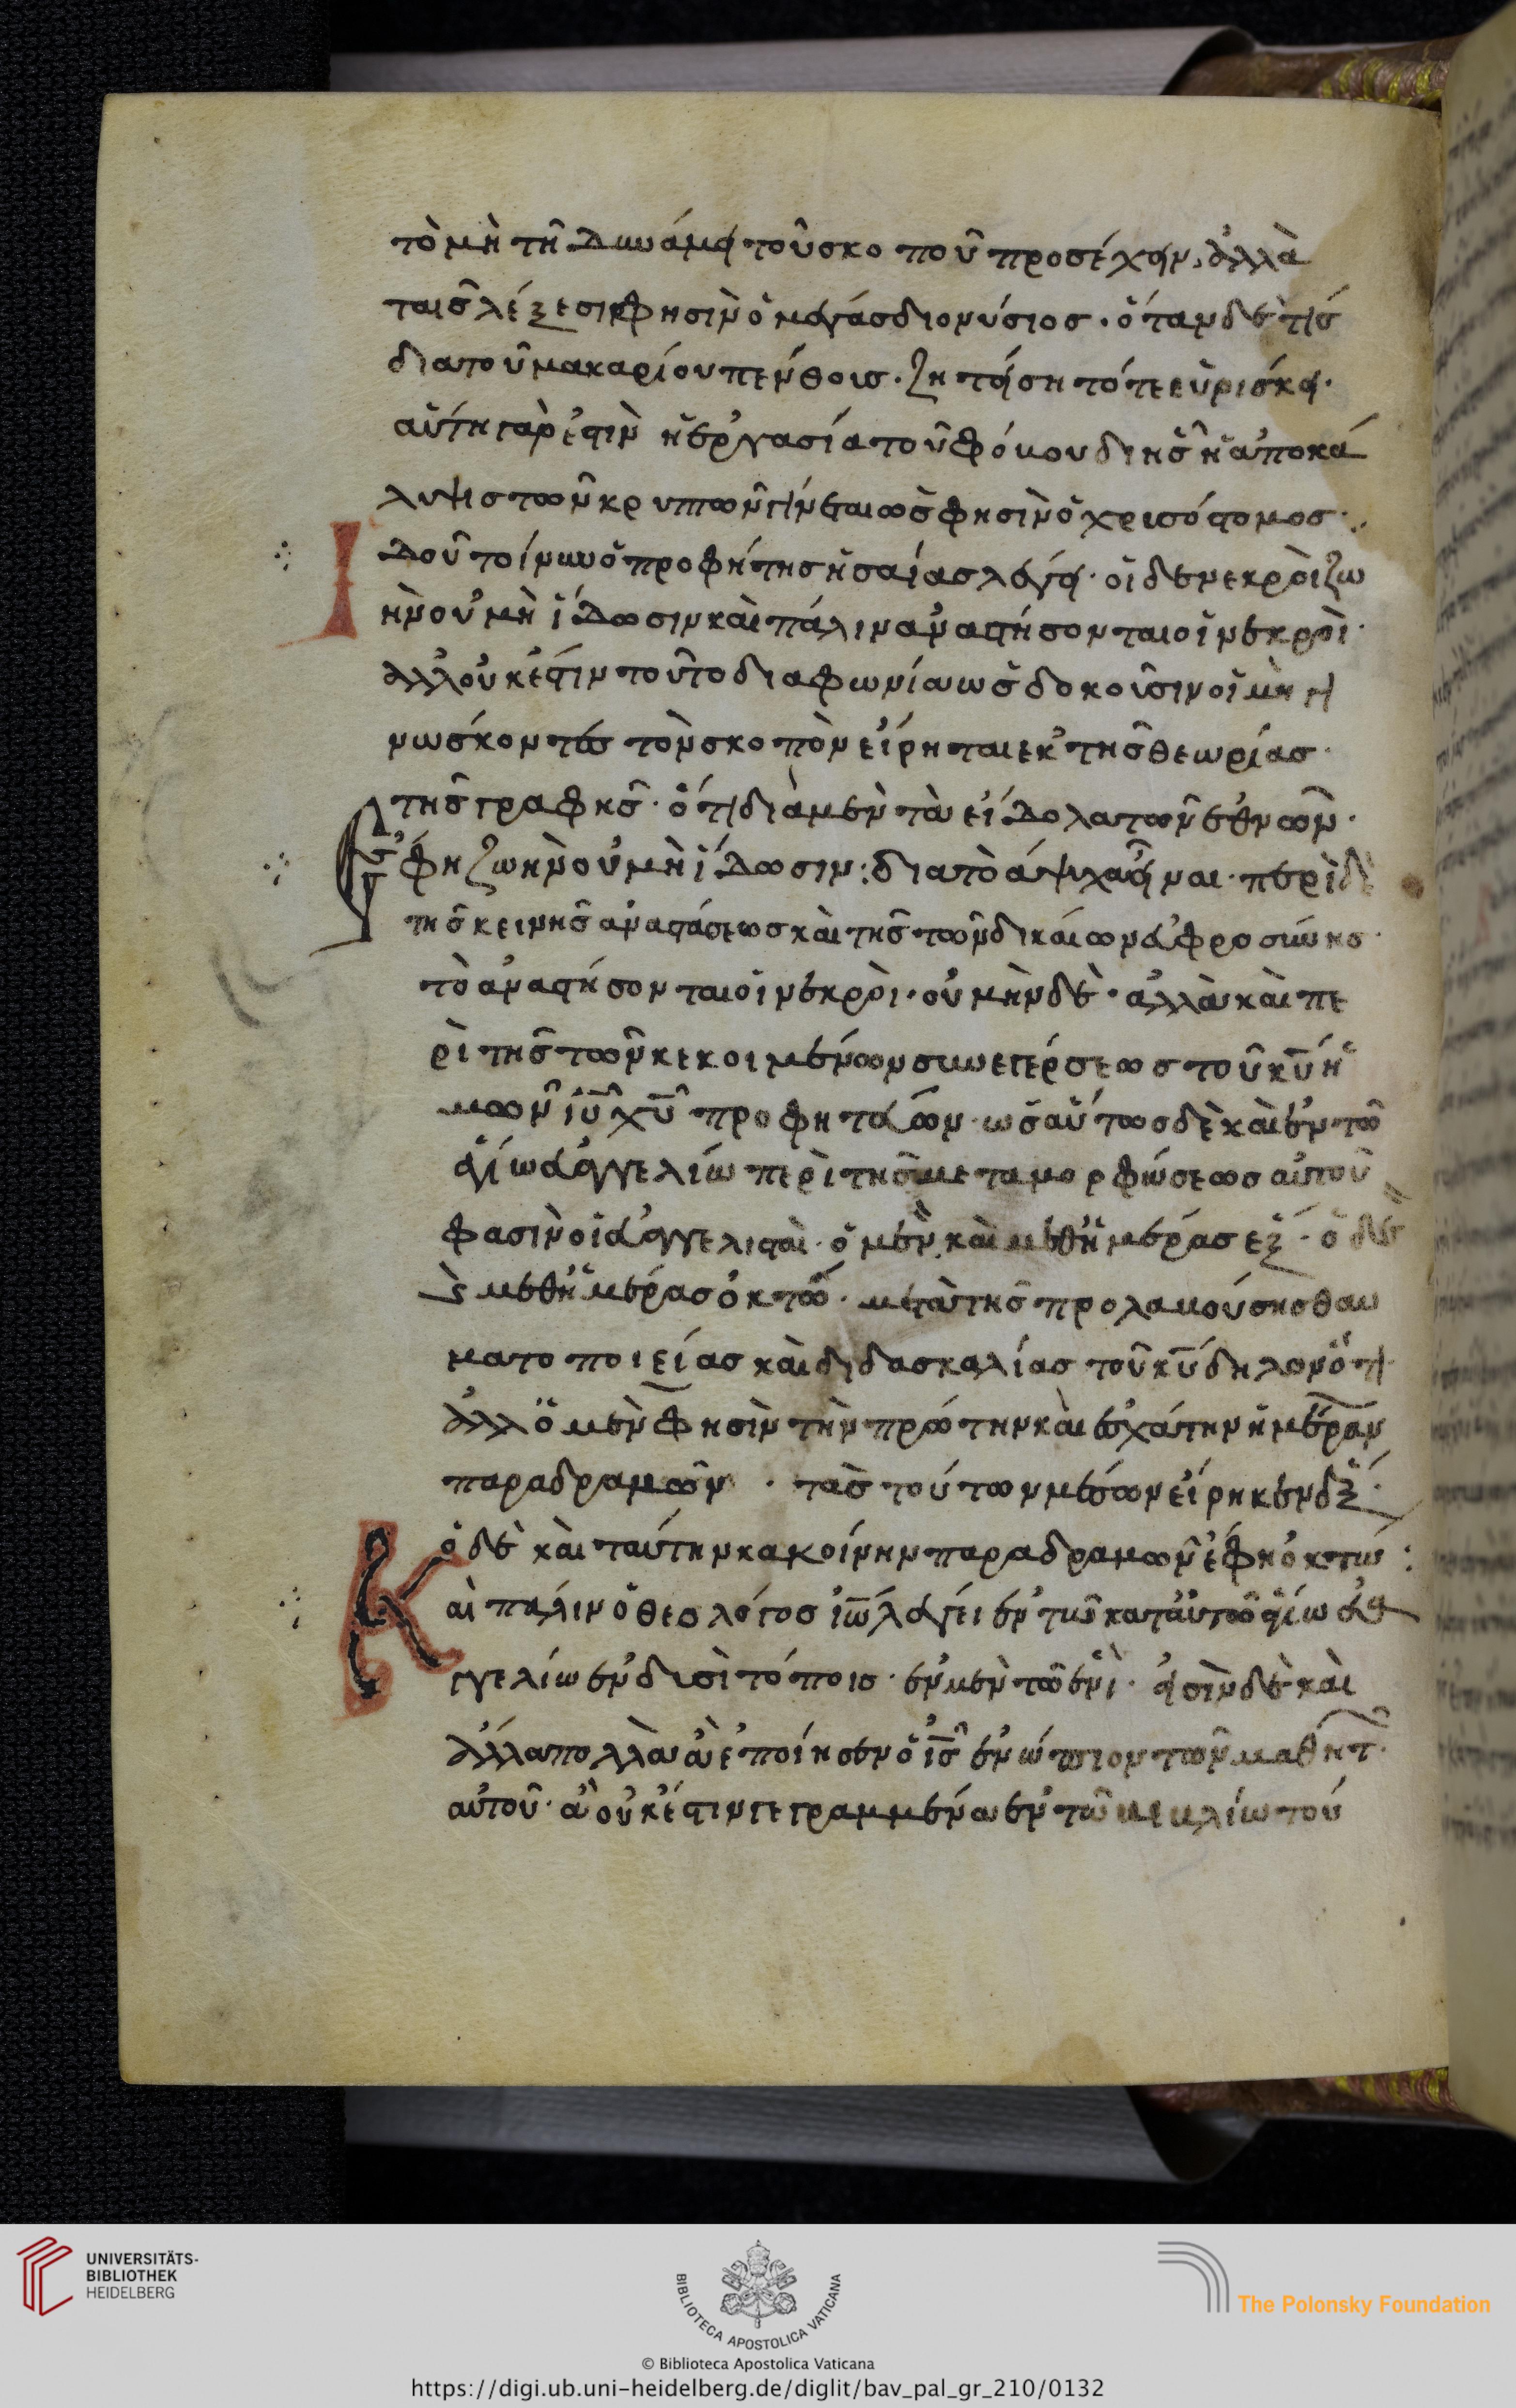 τὸ μὴ τῆ δυνάμει τοῦ σκοποῦ προσέχειν, ἀλλὰ
ταῖς λέξεσι φησὶν ὁ μέγας διονύσιος· ὅταν δὲ τίς
διατοῦ μακαρίου πένθοις· ζητήση τότε εὑρίσκει·
αὕτη γὰρ ἐστὶν ἡ ἐργασία τοῦ φόβου δι ἧς ἡ ἀποκά
λυψις τῶν κρυπτῶν γίνεται ὡς φησὶν ὁ χρισόστομος·
Ἰδοῦ τοίνυν ὁ προφήτης ἡσαΐας λέγει· οἱ δε νεκροὶ ζω
ὴν οὐ μὴ ἴδωσιν καὶ πάλιν ἀναστήσονται οἱ νεκροὶ·
ἀλλ οὐκ ἔστιν τοῦτο διαφωνία ὡς δοκοῦσιν οἱ μὴ γι
νώσκοντες τὸν σκοπὸν εἴρηται εκ τῆς θεωρίας·
τῆς γραφῆς· ὅτι διὰ μὲν τὰ εἴδολα τῶν ἐθνῶν·
ἔφη ζωὴν οὐ μὴ ἴδωσιν: διατὸ άψυχα εἶναι· περὶ δὲ
τῆς κεινῆς ἀναστάσεως καὶ τῆς τῶν δικαίων εὐφροσύνης·
τὸ ἀναστήσονται οἱ νεκροὶ· οὐ μὴν δὲ· ἀλλὰ καὶ πε
ρὶ τῆς τῶν κεκοιμένων συνεγέρσεως τοῦ κῡ ἡ
μῶν ιῡ χῡ προφητεύων· ὡς αὕτως δὲ καὶ ἐν τῶ
ἁγίω εὐαγγελίω περὶ τῆς μεταμορφώσεως αὐτοῦ
φασὶν οἱ εὐαγγελισταὶ· ὁ μὲν καὶ μεθ ἡμέρας εξ· ὁ δὲ
ϛ μεθ ἡμέρας ὀκτῶ· μετὰ τῆς προλαβούσης θαυ
ματοποιείας καὶ διδασκαλίας τοῦ κῡ δηλονότι·
ἀλλ ὁ μὲν φησὶν τὴν πρώτην καὶ ἐσχάτην ἡμέραν
παραδραμῶν· τὰς τούτων μέσων εἴρηκεν ἕξ·
ὁ δὲ καὶ ταύτην κακείνην παραδραμῶν ἔφη ὀκτώ:
Καὶ πάλιν ὁ θεολόγος ἰω̄ λέγει ἐν τῶ κατ αὐτῶ ἁγίω εὐα
γγελίω ἐν δυσὶ τόποις· ἐν μὲν τῶ ἑνὶ· εἰσὶν δὲ καὶ
ἄλλα πολλὰ ἃ ἐποίησεν ὁ ις̄ ἐνώπιον τῶν μαθητ·
αὐτοῦ· ἃ οὐκ ἔστιν γεγραμμένα ἐν τῶ βιβλίω τού
UNIVERSITÄTS-
BIBLIOTHEK
HEIDELBERG
BIBLIOTECA APOSTOLICA VATICANA
The Polonsky Foundation
© Biblioteca Apostolica Vaticana
https://digi.ub.uni-heidelberg.de/diglit/bav_pal_gr_210/0132